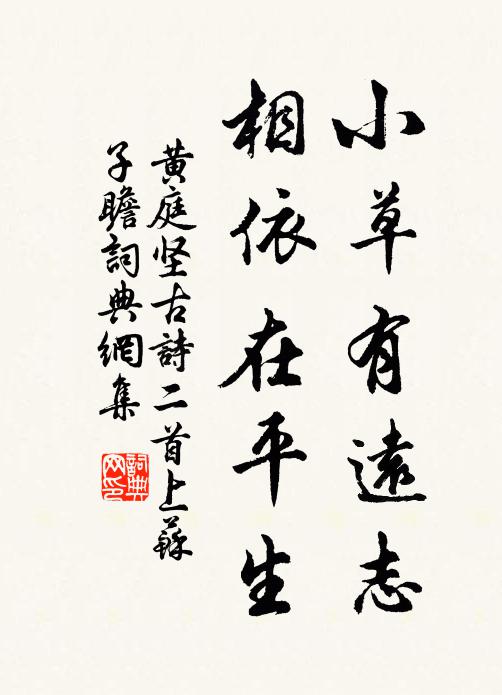 小草有遠志
相依在平生
黄庭坚古詩二首上蘇
子瞻詞典網集
詞典
网印